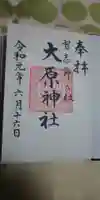 奉拝
大原神社
令和元年六月十六日